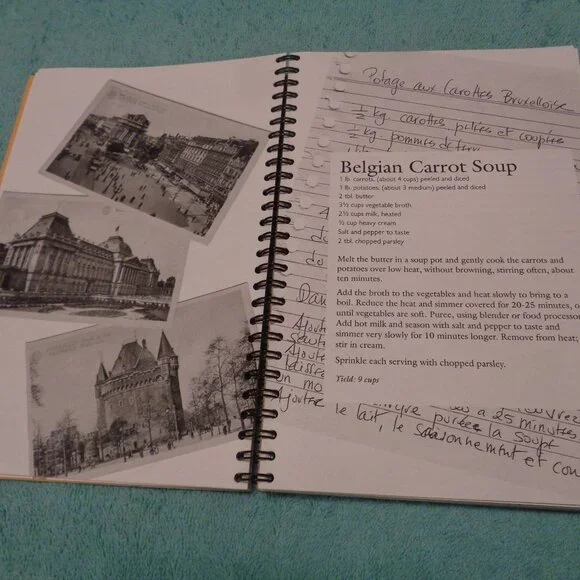 Potage aux Carottes Bruxelloise
½ kg. carottes, pelées et coupées
½ kg. pommes de terre
Belgian Carrot Soup
1 lb. carrots, (about 4 cups) peeled and diced
1 lb. potatoes, (about 3 medium) peeled and diced
2 tbl. butter
3½ cups vegetable broth
2½ cups milk, heated
½ cup heavy cream
Salt and pepper to taste
2 tbl. chopped parsley
Melt the butter in a soup pot and gently cook the carrots and
potatoes over low heat, without browning, stirring often, about
ten minutes.
Add the broth to the vegetables and heat slowly to bring to a
boil. Reduce the heat and simmer covered for 20-25 minutes, o
until vegetables are soft. Puree, using blender or food processor
Add hot milk and season with salt and pepper to taste and
simmer very slowly for 10 minutes longer. Remove from heat;
stir in cream.
Sprinkle each serving with chopped parsley.
Yield: 9 cups
Dan
Ajoute
Ajoute
laisse
un mo
Ajoutre
a 25 minutes
purée la soupe
le lait, le
et con